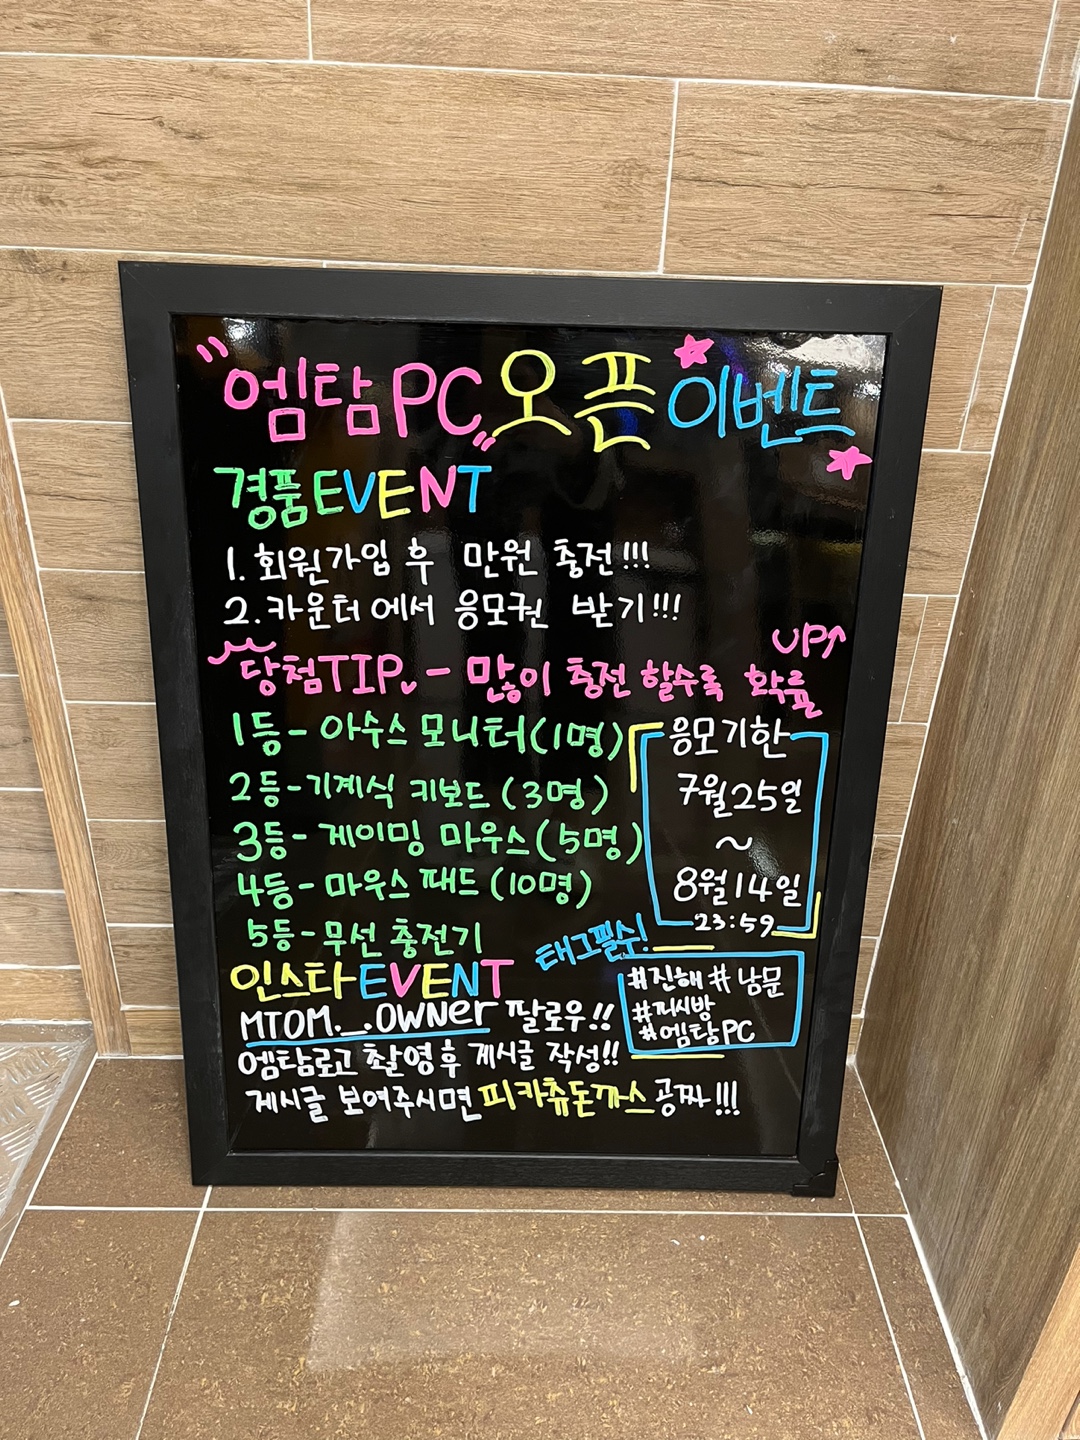 "엠탐PC" 오픈 이벤트
경품EVENT
1. 회원가입 후 만원 충전!!!
2. 카운터에서 응모권 받기!!!
당첨TIP. - 많이 충전 할수록 확률 UP↑
1등 - 아수스 모니터 (1명)
2등 - 기계식 키보드 (3명)
3등 - 게이밍 마우스 (5명)
4등 - 마우스 패드 (10명)
5등 - 무선 충전기
응모기한
7월25일
~
8월14일
23:59
인스타EVENT
MTOM._.OWNer 팔로우!!
엠탐로고 촬영후 게시글 작성!!
게시글 보여주시면 피카츄돈까스 공짜!!!
태그필수!
#진해 #남문
#피시방
#엠탐PC